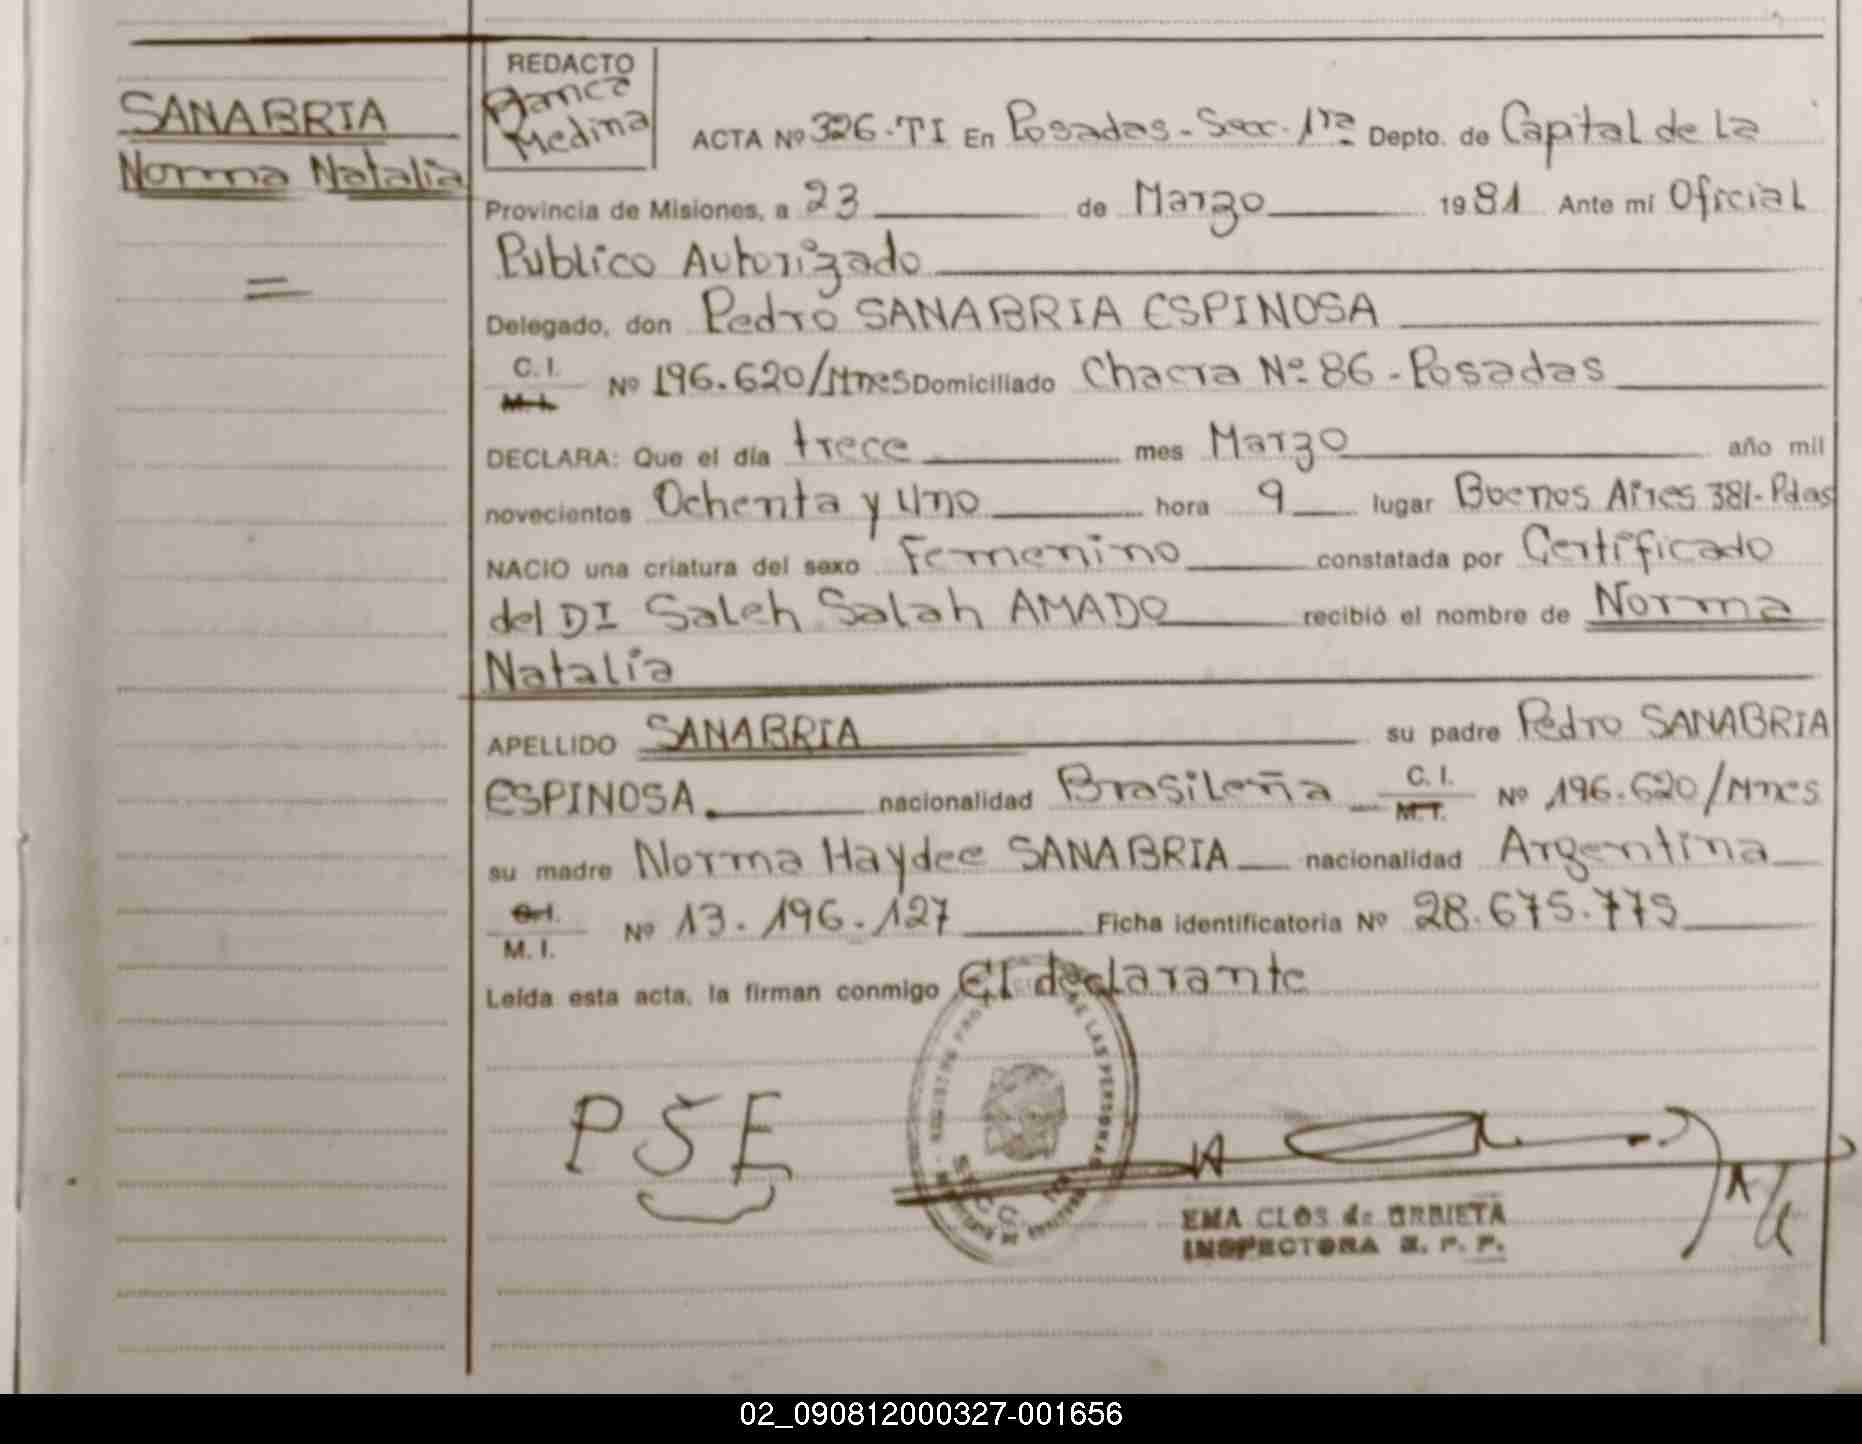 SANABRIA
Norma Natalia
=
REDACTO
Blanca
Medina
ACTA Nº 326-TI En Posadas-Secc-1ra Depto. de Capital de La
Provincia de Misiones, a 23 de Marzo 1981 Ante mí Oficial
Publico Autorizado
Delegado, don Pedro SANABRIA ESPINOSA
C. I.
M. I. Nº 196.620/Mnes Domiciliado Chacra Nº 86 - Posadas
DECLARA: Que el día trece mes Marzo año mil
novecientos Ochenta y uno hora 9 lugar Buenos Aires 381-Pdas
NACIO una criatura del sexo Femenino constatada por Certificado
del DI Saleh Salah AMADO recibió el nombre de Norma
Natalia
APELLIDO SANABRIA su padre Pedro SANABRIA
ESPINOSA. nacionalidad Brasileña C. I. M. I. Nº 196.620/Mnes
su madre Norma Haydee SANABRIA nacionalidad Argentina
C. I.
M. I. Nº 13.196.127 Ficha identificatoria Nº 28.675.775
Leída esta acta, la firman conmigo El declarante
DE LAS PERSONAS
PSE
EMA CLOS de URBIETA
INSPECTORA R. P. P.
02_090812000327-001656